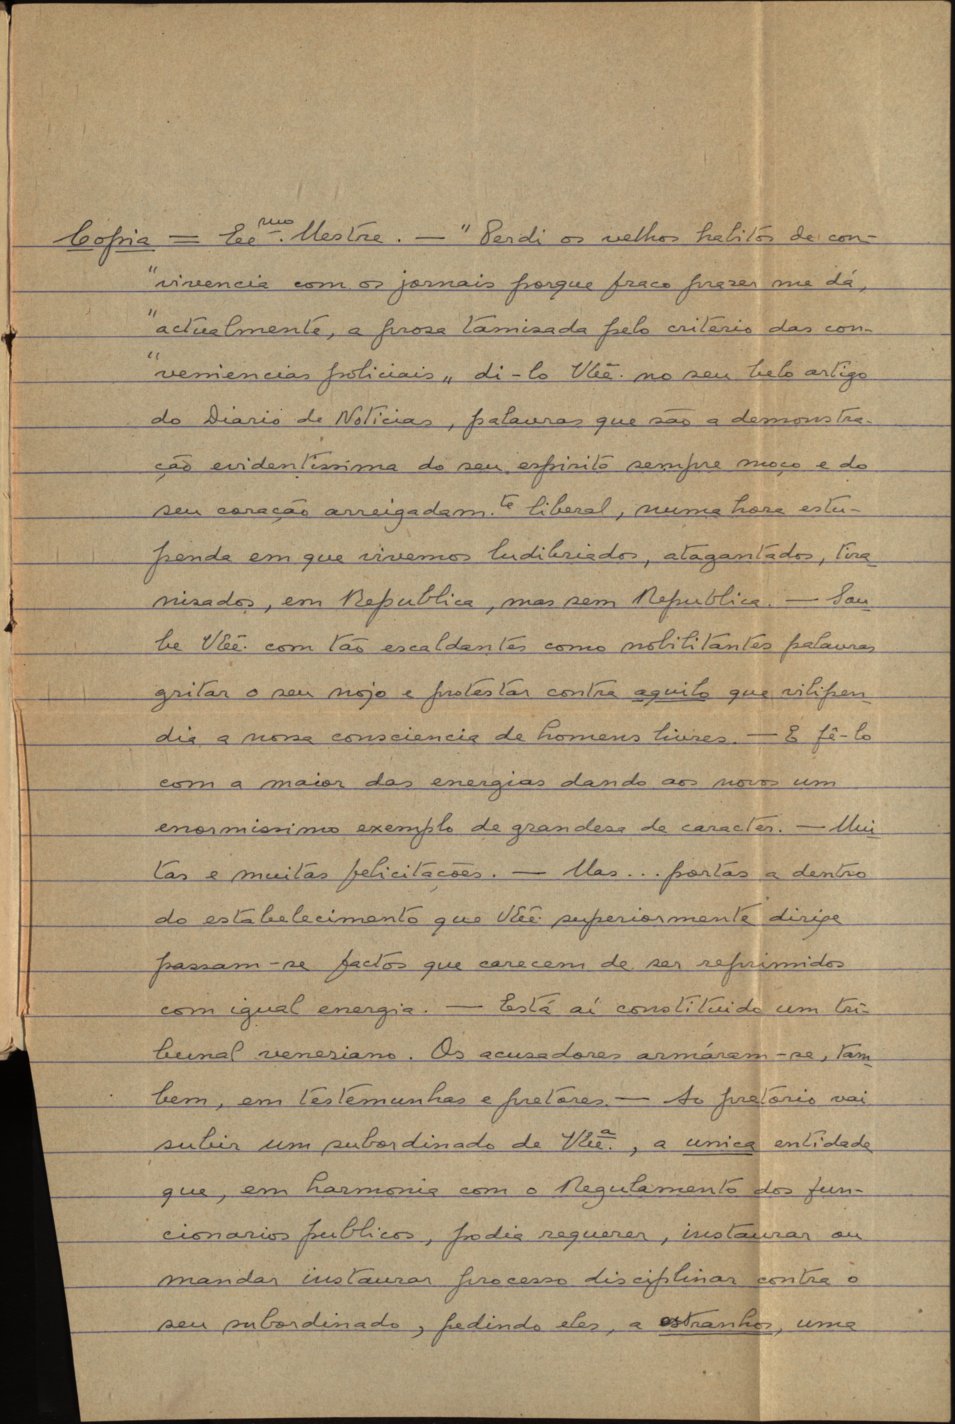 Copia = Exmo. Mestre. — "Perdi os velhos habitos de con-
"vivencia com os jornais porque fraco praser me dá,
"actualmente, a prosa tamisada pelo criterio das con-
"veniencias policiais„ di-lo VExª. no seu belo artigo
do Diario de Noticias, palavras que são a demonstra-
ção evidentissima do seu espirito sempre moço e do
seu coração arreigadam.te liberal, numa hora estu-
penda em que vivemos ludibriados, atagantados, tira-
nisados, em Republica, mas sem Republica. — Sou-
be VExª. com tão escaldantes como nobilitantes palavras
gritar o seu nojo e protestar contra aquilo que vilipen-
dia a nossa consciencia de homens livres. — E fê-lo
com a maior das energias dando aos novos um
enormissimo exemplo de grandesa de caracter. — Mui-
tas e muitas felicitações. — Mas... portas a dentro
do estabelecimento que VExª. superiormente dirige
passam-se factos que carecem de ser reprimidos
com igual energia. — Está aí constituido um tri-
bunal venesiano. Os acusadores armáram-se, tam-
bem, em testemunhas e pretores. — Ao pretorio vai
subir um subordinado de VExª., a unica entidade
que, em harmonia com o Regulamento dos fun-
cionarios publicos, podia requerer, instaurar ou
mandar instaurar processo disciplinar contra o
seu subordinado, pedindo eles, a estranhos, uma